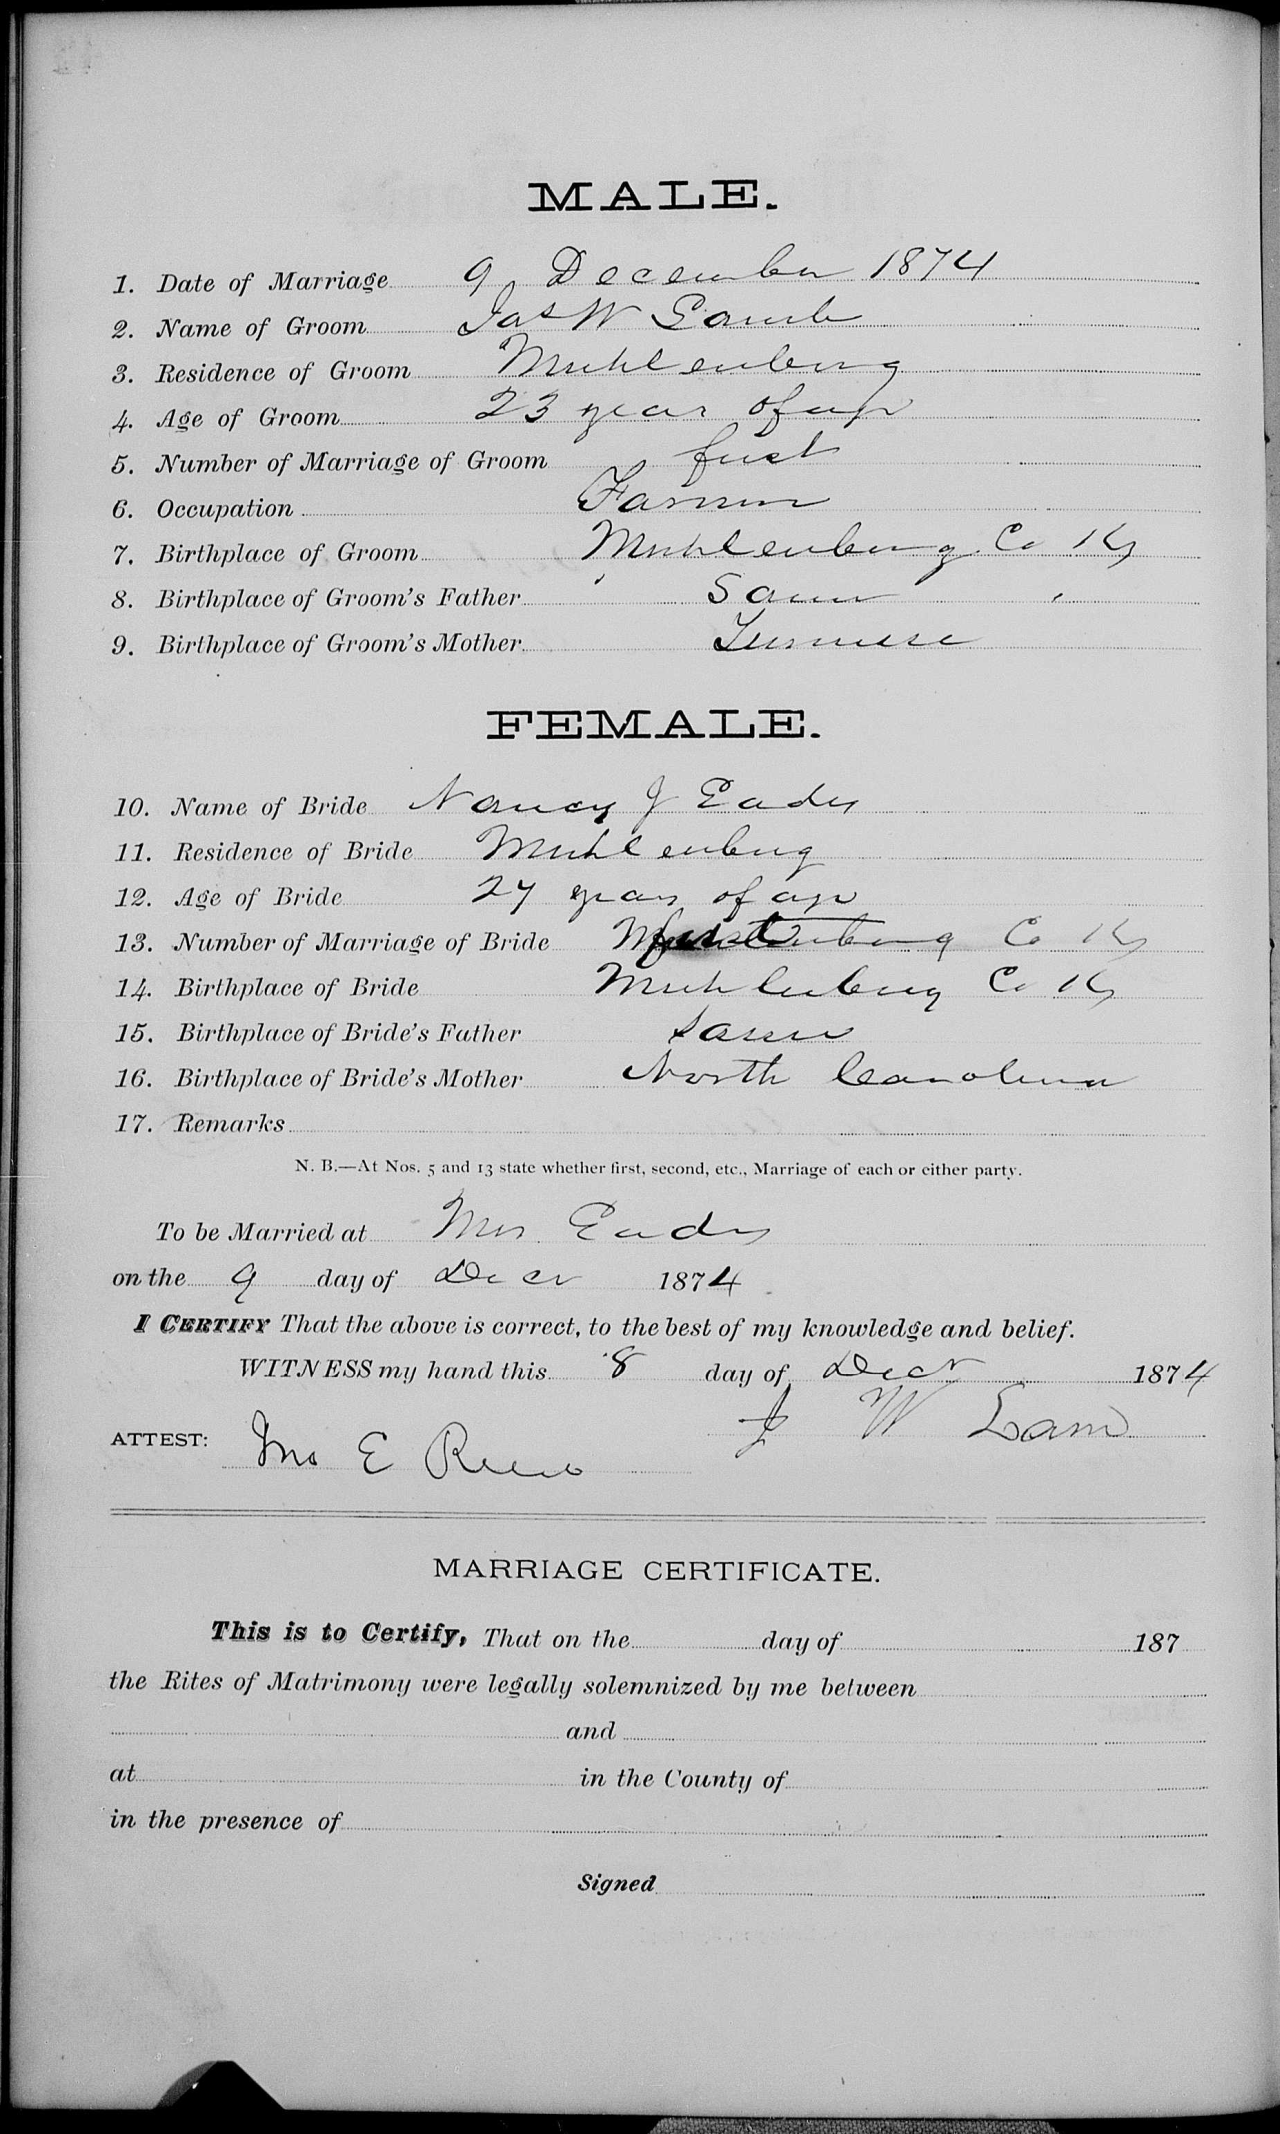 MALE.
1. Date of Marriage 9 December 1874
2. Name of Groom Jas W Lamb
3. Residence of Groom Muhlenburg
4. Age of Groom 23 years of age
5. Number of Marriage of Groom first
6. Occupation Farmer
7. Birthplace of Groom Muhlenburg Co Ky
8. Birthplace of Groom's Father Same
9. Birthplace of Groom's Mother Tennessee
FEMALE.
10. Name of Bride Nancy J Eades
11. Residence of Bride Muhlenburg
12. Age of Bride 27 years of age
13. Number of Marriage of Bride first Co Ky
14. Birthplace of Bride Muhlenburg Co Ky
15. Birthplace of Bride's Father Same
16. Birthplace of Bride's Mother North Carolina
17. Remarks
N. B.—At Nos. 5 and 13 state whether first, second, etc., Marriage of each or either party.
To be Married at Mrs. Eades
on the 9 day of Decr 1874
I CERTIFY That the above is correct, to the best of my knowledge and belief.
WITNESS my hand this 8 day of Decr 1874
J W Lam
ATTEST: Jno E Reno
MARRIAGE CERTIFICATE.
This is to Certify, That on the day of 187
the Rites of Matrimony were legally solemnized by me between
and
at in the County of
in the presence of
Signed